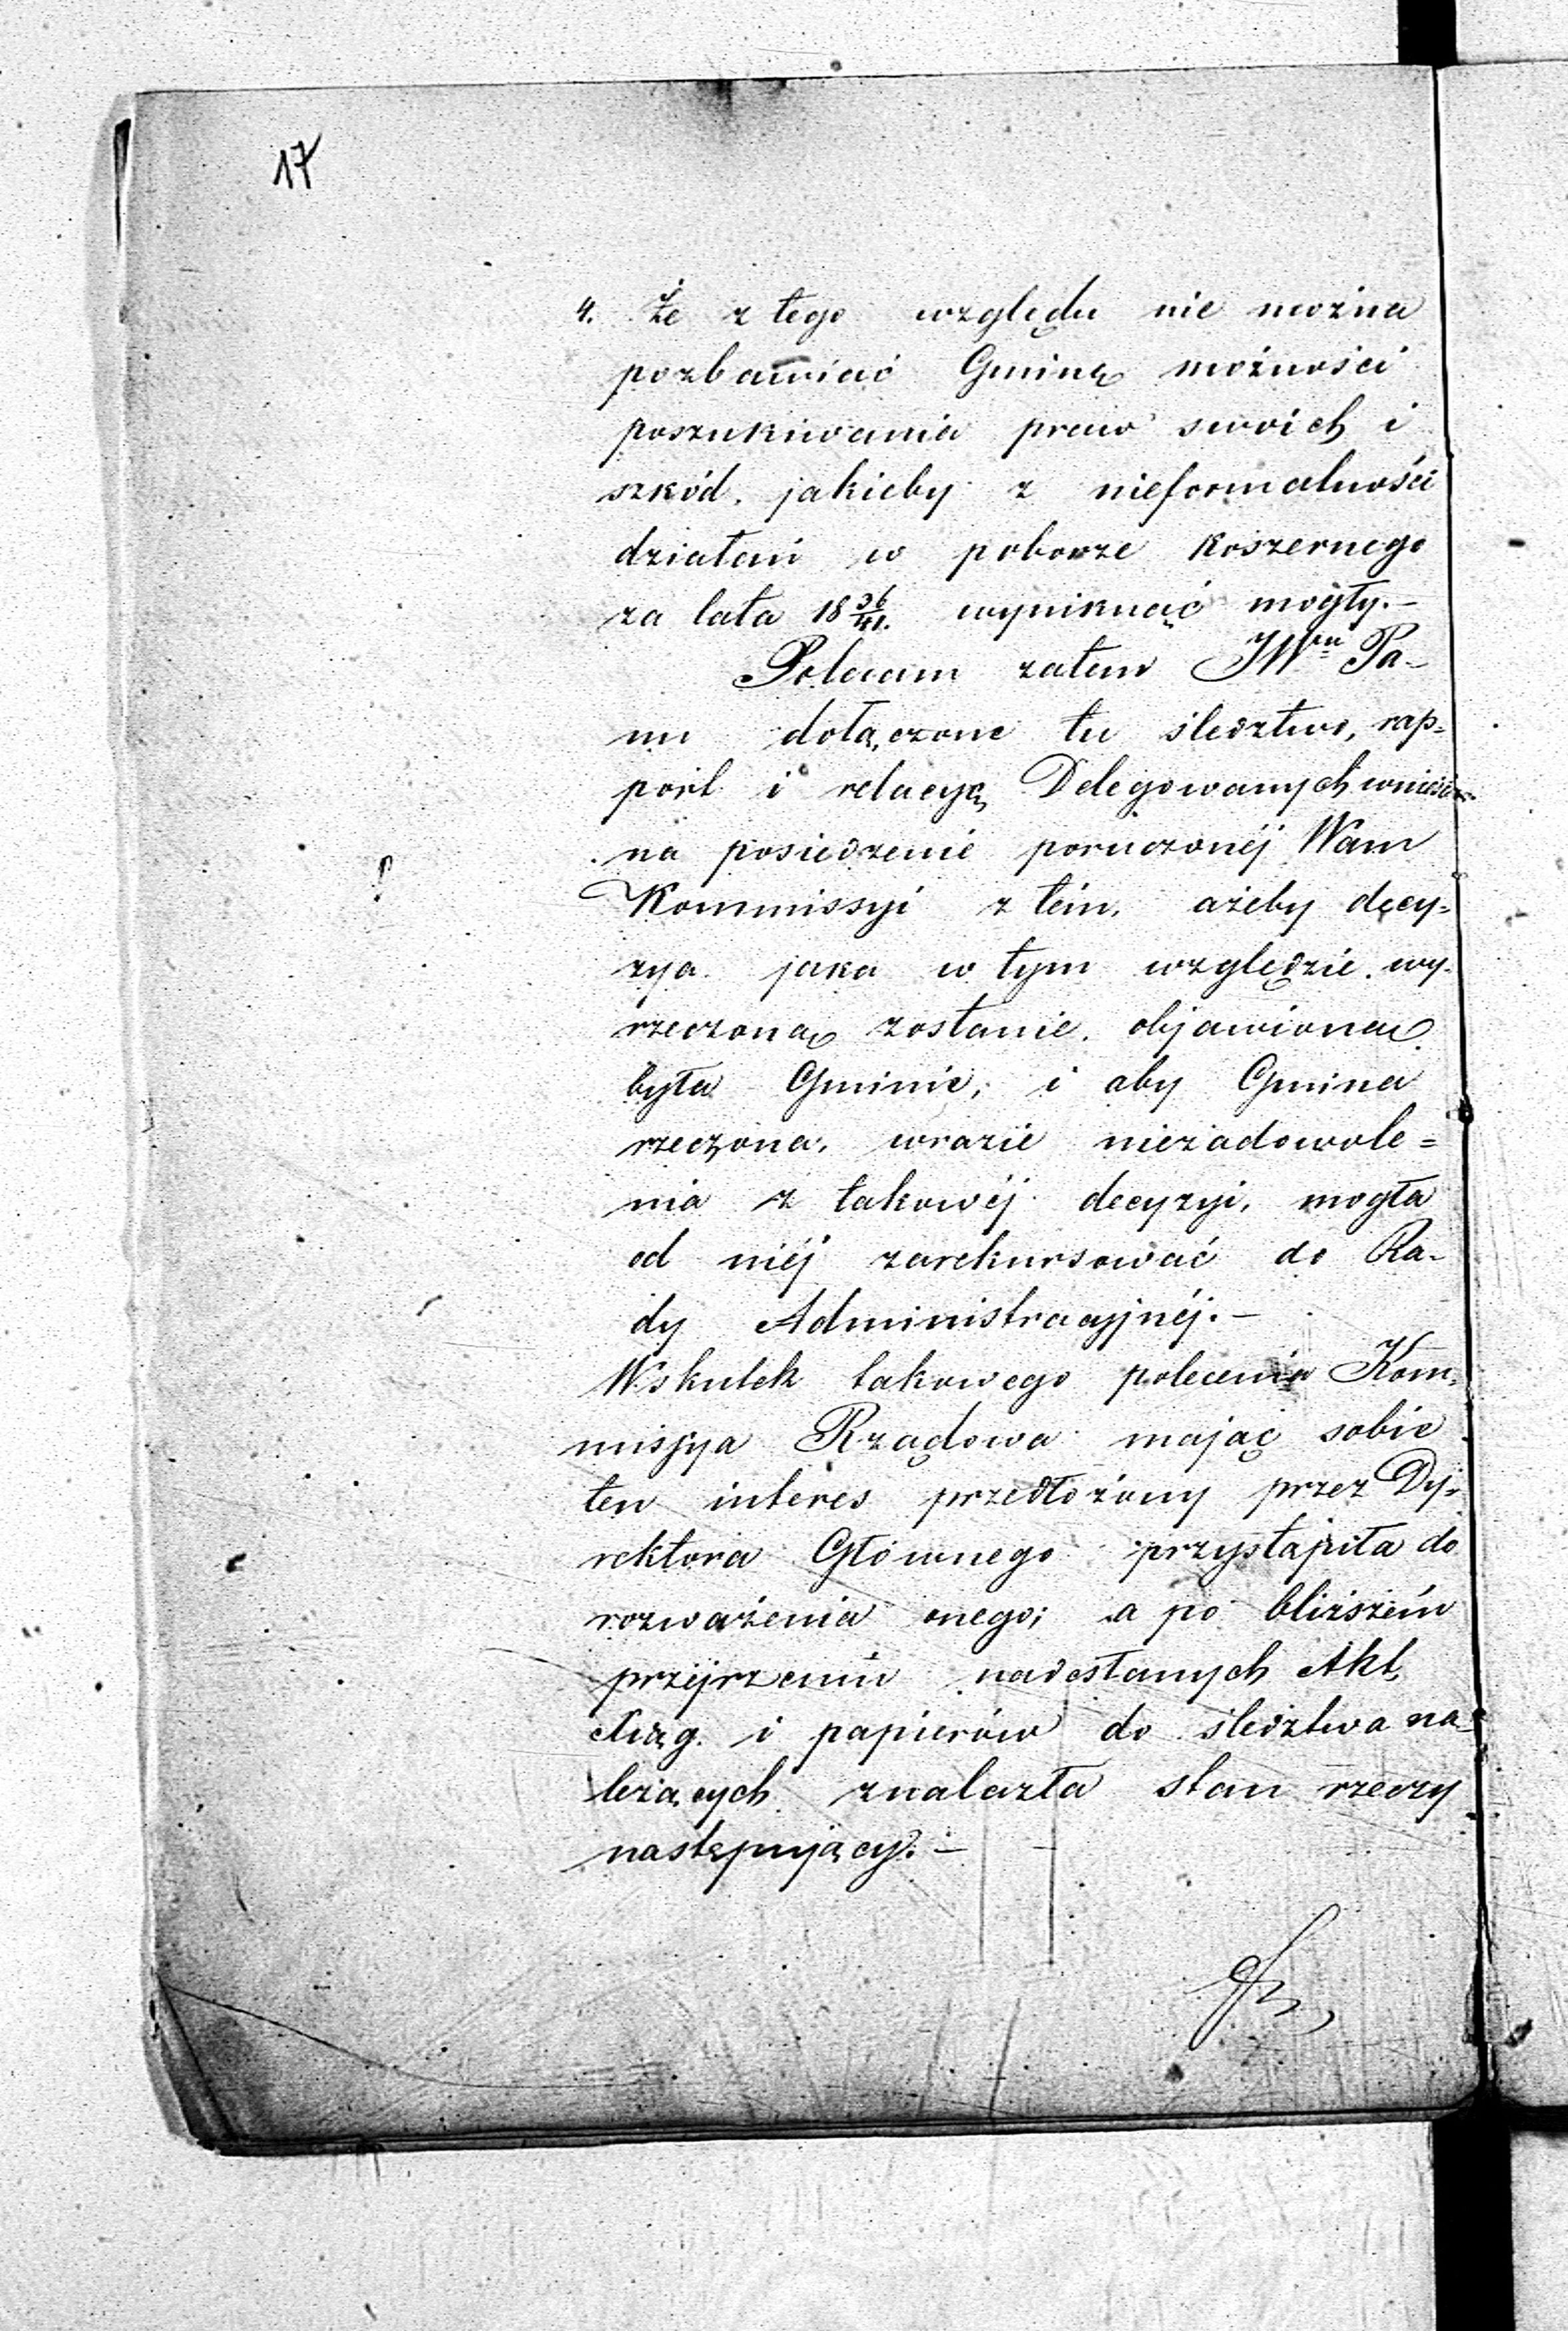 17
4. Że z tego względu nie można
pozbawiać Gminę możności
poszukiwania praw swoich i
szkód, jakieby z nieformalności
działań w poborze koszernego
za lata 18 36/41. wyniknąć mogły.—
Polecam zatem JWmu Pa-
nu dołączone tu śledztwo, rap=
port i relacyę Delegowanych wnieść
na posiedzenie poruczonéj Wam
Kommissyi z tém, ażeby decy=
zya jaka w tym względzie wy-
rzeczoną zostanie, objawioną
była Gminie, i aby Gmina
rzeczona, wrazie niezadowole=
nia z takowéj decyzyi, mogła
od niéj zarekursować do Ra-
dy Administracyjnéj.—
Wskutek takowego polecenia Kom=
missya Rządowa mając sobie
ten interes przedłożony przez Dy=
rektora Głównego przystąpiła do
rozważenia onego; a po bliższém
przejrzeniu nadesłanych Akt,
Xiąg i papierów do śledztwa na-
leżących znalazła stan rzeczy
następujący:—